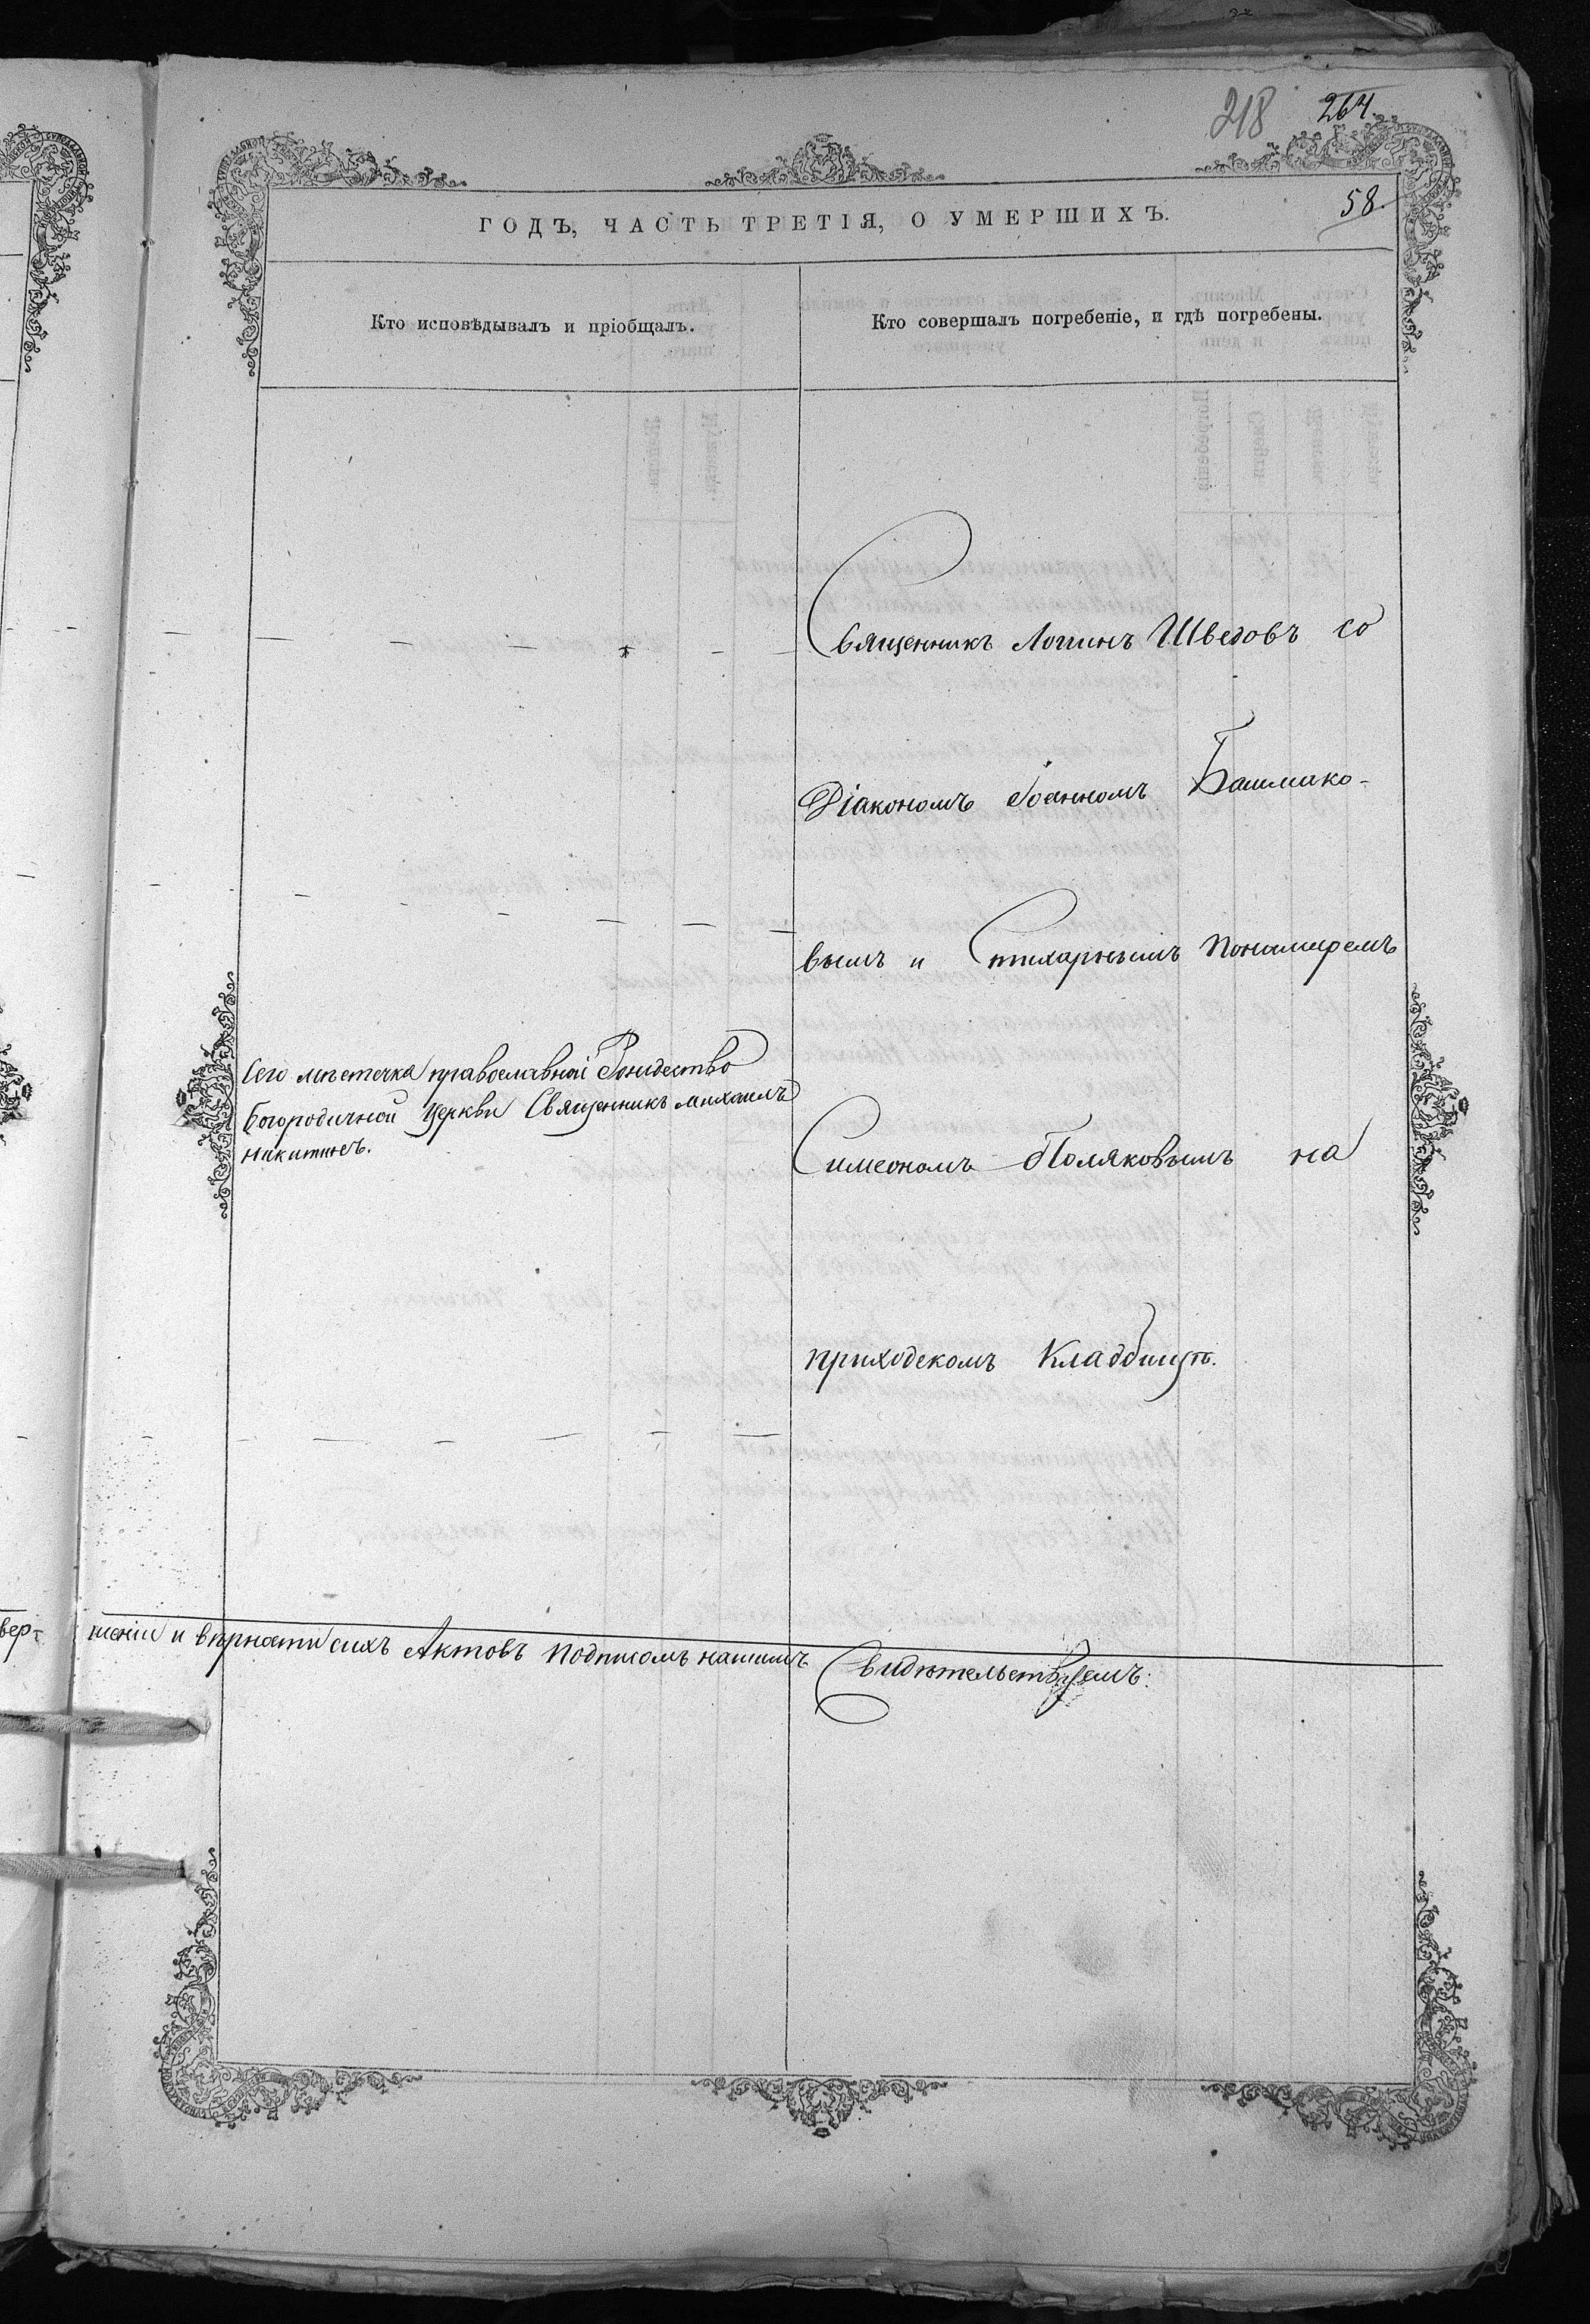 218 264.
58.
ГОДЪ, ЧАСТЬ ТРЕТІЯ, О УМЕРШИХЪ.
Кто исповѣдывалъ и пріобщалъ.
Кто совершалъ погребеніе, и гдѣ погребены.
Священникъ Логинъ Шведовъ со
Діакономъ Іоанномъ Башмако-
вымъ и Стихарнымъ Пономаремъ
Симеономъ Поляковымъ на
приходскомъ Кладбищѣ.
Сего мѣстечка православной Рождество
Богородичной Церкви Священникъ Михаилъ
Никитинъ.
вер-
шеніи и вѣрности сихъ Актовъ подписомъ нашимъ Свидѣтельствуемъ: